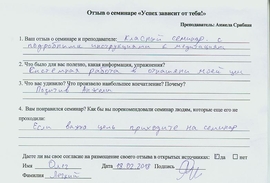 Отзыв о семинаре «Успех зависит от тебя!»
Преподаватель: Анжела Срибная
1. Ваш отзыв о семинаре и преподавателе: Классный семинар. с
подробными инструкциями и медитациями
2. Что было для вас полезно, какая информация, упражнения?
работа в отношении моей цели
3. Что вас удивило? Что произвело наибольшее впечатление? Почему?
Позитив
4. Вам понравился семинар? Как бы вы порекомендовали семинар людям, которые еще его не
проходили:
Если важна цель приходите на семинар
Даете ли вы свое согласие на размещение своего отзыва в открытых источниках: да нет
Имя Олег Дата 08.07.2018 Подпись
Фамилия